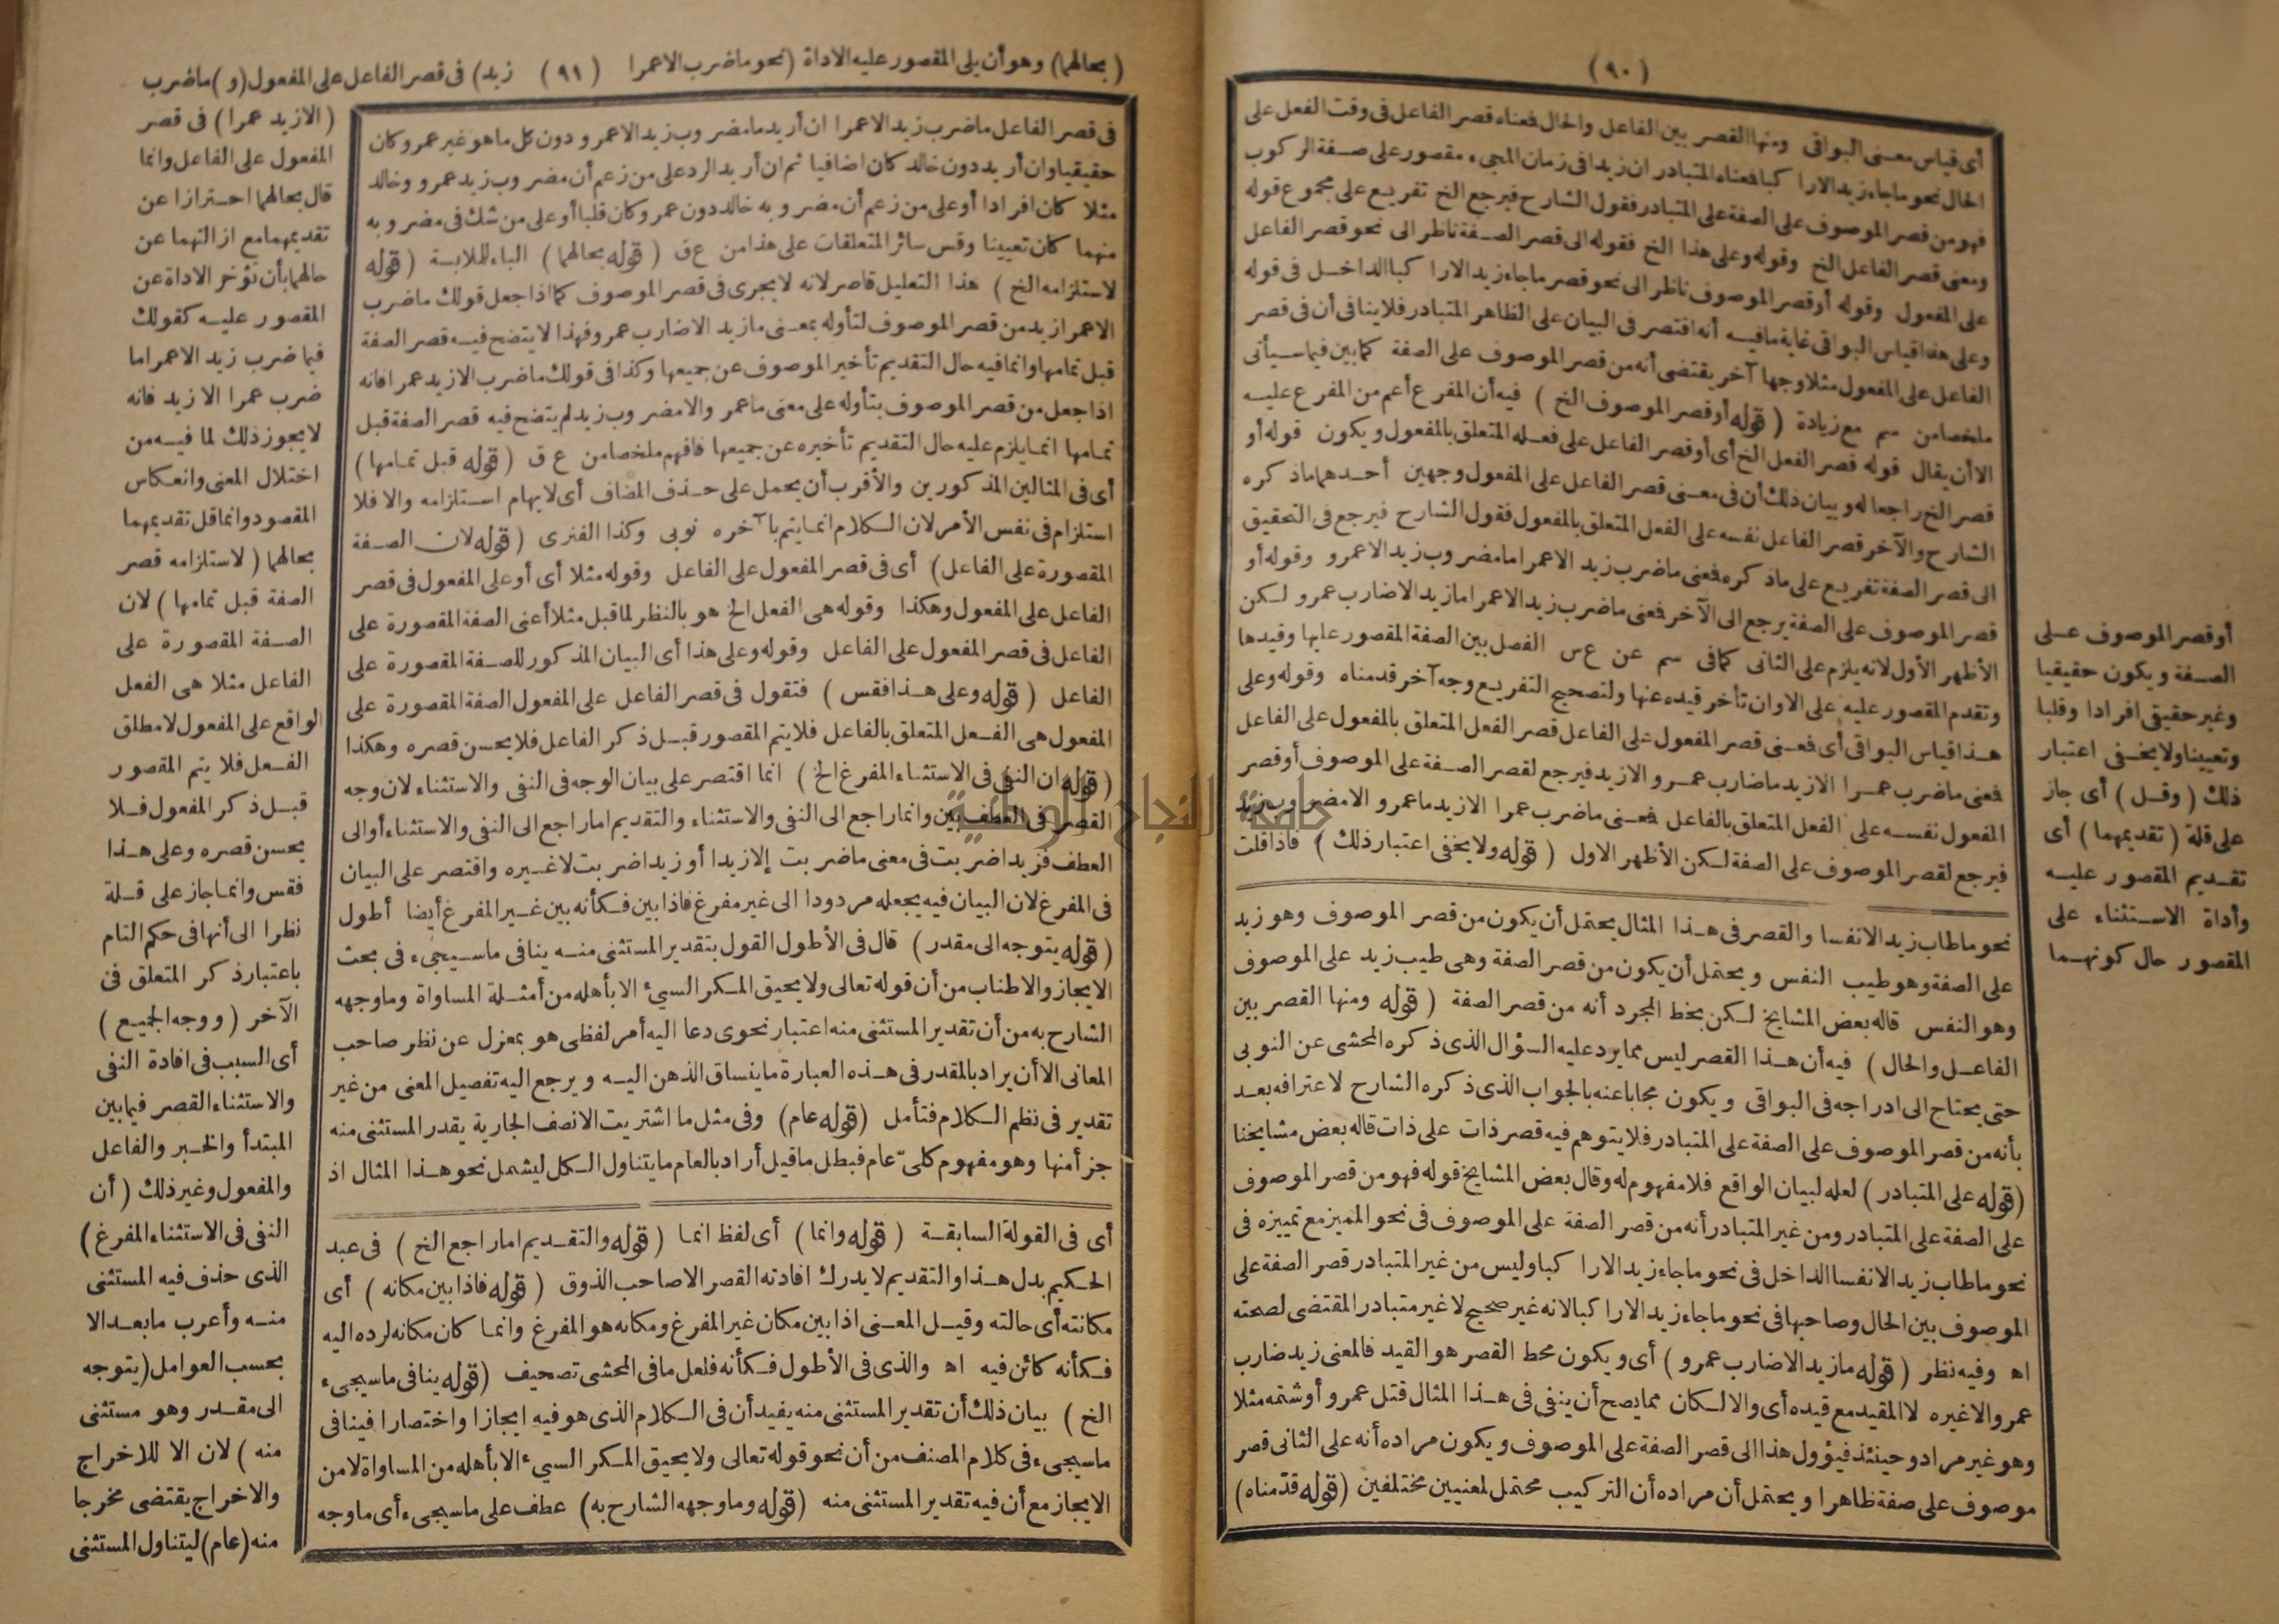 (٩٠)
أى قياس معنى البواقى ومنها القصر بين الفاعل والحال فعناه قصر الفاعل فى وقت الفعل على
الحال نحو ماجاء زيد الارا كبافعناه المتبادر ان زيدا فى زمان المجىء مقصور على صفة الركوب
فهو من قصر الموصوف على الصفة على المتبادر فقول الشارح فيرجع الخ تفريع على مجموع قوله
ومعنى قصر الفاعل الخ وقوله وعلى هذا الخ فقوله الى قصر الصفة ناظر الى نحو قصر الفاعل
على المفعول وقوله أو قصر الموصوف ناظر الى نحو قصر ماجاء زيد الارا كبا الداخل فى قوله
وعلى هذا قياس البواقى غاية مافيه أنه اقتصر فى البيان على الظاهر المتبادر فلاينافى أن فى قصر
الفاعل على المفعول مثلا وجها آخر يقتضى أنه من قصر الموصوف على الصفة كمابين فيما سيأتى
ملخصا من سم مع زيادة (قوله أو قصر الموصوف الخ) فيه أن المفرع أعم من المفرع عليه
الا أن يقال قوله قصر الفعل الخ أى أو قصر الفاعل على فعله المتعلق بالمفعول ويكون قوله أو
قصر الخ راجعا له وبيان ذلك أن فى معنى قصر الفاعل على المفعول وجهين أحدهما ماذكره
الشارح والآخر قصر الفاعل نفسه على الفعل المتعلق بالمفعول فقول الشارح فيرجع فى التحقيق
الى قصر الصفة تفريع على ماذكره فعنى ماضرب زيد الاعمرا مامضروب زيد الاعمرو وقوله أو
قصر الموصوف على الصفة يرجع الى الآخر فعنى ماضرب زيد الاعمرا مازيد الاضارب عمرو لكن
الأظهر الأول لانه يلزم على الثانى كمافى سم عن ع س الفصل بين الصفة المقصور عليها وقيدها
وتقدم المقصور عليه على الا وان تأخر قيده عنها ولتصحيح التفريع وجه آخر قدمناه وقوله وعلى
هذا قياس البواقى أى فعنى قصر المفعول على الفاعل قصر الفعل المتعلق بالمفعول على الفاعل
فعنى ماضرب عمرا الازيد ماضارب عمرو الازيد فيرجع لقصر الصفة على الموصوف أو قصر
المفعول نفسه على الفعل المتعلق بالفاعل فعنى ماضرب عمرا الازيد ماعمرو الامضروب زيد
فيرجع لقصر الموصوف على الصفة لكن الأظهر الاول (قوله ولا يخفى اعتبار ذلك) فاذا قلت
أو قصر الموصوف على
الصفة ويكون حقيقيا
وغير حقيقى افرادا وقلبا
وتعيينا ولا يخفى اعتبار
ذلك (وقل) أى جاز
على قلة (تقديمهما) أى
تقديم المقصور عليه
وأداة الاستثناء على
المقصور حال كونهما
نحو ماطاب زيد الانفسا والقصر فى هذا المثال يحتمل أن يكون من قصر الموصوف وهو زيد
على الصفة وهو طيب النفس ويحتمل أن يكون من قصر الصفة وهى طيب زيد على الموصوف
وهو النفس قاله بعض المشايخ لكن بخط المجرد أنه من قصر الصفة (قوله ومنها القصر بين
الفاعل والحال) فيه أن هذا القصر ليس مما يرد عليه السؤال الذى ذكره المحشى عن النوبى
حتى يحتاج الى ادراجه فى البواقى ويكون مجابا عنه بالجواب الذى ذكره الشارح لاعترافه بعد
بأنه من قصر الموصوف على الصفة على المتبادر فلا يتوهم فيه قصر ذات على ذات قاله بعض مشايخنا
(قوله على المتبادر) لعله لبيان الواقع فلا مفهوم له وقال بعض المشايخ قوله فهو من قصر الموصوف
على الصفة على المتبادر ومن غير المتبادر أنه من قصر الصفة على الموصوف فى نحو المميز مع تمييزه فى
نحو ماطاب زيد الانفسا الداخل فى نحو ماجاء زيد الارا كبا وليس من غير المتبادر قصر الصفة على
الموصوف بين الحال وصاحبها فى نحو ماجاء زيد الارا كبا لانه غير صحيح لا غير متبادر المقتضى لصحته
اه وفيه نظر (قوله مازيد الاضارب عمرو) أى ويكون محط القصر هو القيد فالمعنى زيد ضارب
عمرو الاغيره لا المقيد مع قيده أى والا لكان مما يصح أن ينفى فى هذا المثال قتل عمرو أو شتمه مثلا
وهو غير مراد وحينئذ فيؤول هذا الى قصر الصفة على الموصوف ويكون مراده أنه على الثانى قصر
موصوف على صفة ظاهرا ويحتمل أن مراده أن التركيب محتمل لمعنيين مختلفين (قوله قدّمناه)
(بحالهما) وهو أن يلى المقصور عليه الاداة (نحو ماضرب الاعمرا (٩١) زيد) فى قصر الفاعل على المفعول (و) ماضرب
(الازيد عمرا) فى قصر
المفعول على الفاعل وانما
قال بحالهما احترازا عن
تقديمهما مع ازالتهما عن
حالهما بأن تؤخر الاداة عن
المقصور عليه كقولك
فيما ضرب زيد الاعمراما
ضرب عمرا الا زيد فانه
لا يجوز ذلك لما فيه من
اختلال المعنى وانعكاس
المقصود وانما قل تقديمهما
بحالهما (لاستلزامه قصر
الصفة قبل تمامها) لان
الصفة المقصورة على
الفاعل مثلا هى الفعل
الواقع على المفعول لا مطلق
الفعل فلا يتم المقصور
قبل ذكر المفعول فلا
يحسن قصره وعلى هذا
فقس وانما جاز على قلة
نظرا الى أنها فى حكم التام
باعتبار ذكر المتعلق فى
الآخر (ووجه الجميع)
أى السبب فى افادة النفى
والاستثناء القصر فيما بين
المبتدأ والخبر والفاعل
والمفعول وغير ذلك (أن
النفى فى الاستثناء المفرغ)
الذى حذف فيه المستثنى
منه وأعرب مابعد الا
بحسب العوامل (يتوجه
الى مقدر وهو مستثنى
منه) لان الا للاخراج
والاخراج يقتضى مخرجا
منه (عام) ليتناول المستثنى
فى قصر الفاعل ماضرب زيد الاعمرا ان أريد مامضروب زيد الاعمرو دون كل ماهو غير عمرو كان
حقيقيا وان أريد دون خالد كان اضافيا ثم ان أريد الرد على من زعم أن مضروب زيد عمرو وخالد
مثلا كان افرادا أو على من زعم أن مضروبه خالد دون عمرو كان قلبا أو على من شك فى مضروبه
منهما كان تعيينا وقس سائر المتعلقات على هذا من ع ق (قوله بحالهما) الباء للملابسة (قوله
لاستلزامه الخ) هذا التعليل قاصر لانه لا يجرى فى قصر الموصوف كما اذا جعل قولك ماضرب
الاعمرا زيد من قصر الموصوف لتأوله بمعنى مازيد الاضارب عمرو فهذا لا يتضح فيه قصر الصفة
قبل تمامها وانما فيه حال التقديم تأخير الموصوف عن جميعها وكذا فى قولك ماضرب الازيد عمرا فانه
اذا جعل من قصر الموصوف بتأوله على معنى ماعمر والامضروب زيد لم يتضح فيه قصر الصفة قبل
تمامها انما يلزم عليه حال التقديم تأخيره عن جميعها فافهم ملخصا من ع ق (قوله قبل تمامها)
أى فى المثالين المذكورين والأقرب أن يحمل على حذف المضاف أى لايهام استلزامه والا فلا
استلزام فى نفس الأمر لان الكلام انما يتم بآخره نوبى وكذا الفنرى (قوله لان الصفة
المقصورة على الفاعل) أى فى قصر المفعول على الفاعل وقوله مثلا أى أو على المفعول فى قصر
الفاعل على المفعول وهكذا وقوله هى الفعل الخ هو بالنظر لما قبل مثلا أعنى الصفة المقصورة على
الفاعل فى قصر المفعول على الفاعل وقوله وعلى هذا أى البيان المذكور للصفة المقصورة على
الفاعل (قوله وعلى هذا فقس) فتقول فى قصر الفاعل على المفعول الصفة المقصورة على
المفعول هى الفعل المتعلق بالفاعل فلا يتم المقصور قبل ذكر الفاعل فلا يحسن قصره وهكذا
(قوله ان النفى فى الاستثناء المفرغ الخ) انما اقتصر على بيان الوجه فى النفى والاستثناء لان وجه
القصر فى العطف بين وانما راجع الى النفى والاستثناء والتقديم اما راجع الى النفى والاستثناء أو الى
العطف فزيدا ضربت فى معنى ماضربت إلا زيدا أو زيدا ضربت لاغيره واقتصر على البيان
فى المفرغ لان البيان فيه يجعله مردودا الى غير مفرغ فاذا بين فكأنه بين غير المفرغ أيضا أطول
(قوله يتوجه الى مقدر) قال فى الأطول القول بتقدير المستثنى منه ينافى ماسيجىء فى بحث
الايجاز والاطناب من أن قوله تعالى ولا يحيق المكر السيء الا بأهله من أمثلة المساواة وماوجهه
الشارح به من أن تقدير المستثنى منه اعتبار نحوى دعا اليه أمر لفظى هو بمعزل عن نظر صاحب
المعانى الا أن يراد بالمقدر فى هذه العبارة ماينساق الذهن اليه ويرجع اليه تفصيل المعنى من غير
تقدير فى نظم الكلام فتأمل (قوله عام) وفى مثل ما اشتريت الانصف الجارية يقدر المستثنى منه
جزأمنها وهو مفهوم كلىّ عام فبطل ماقيل أراد بالعام مايتناول الكل ليشمل نحو هذا المثال اذ
أى فى القولة السابقة (قوله وانما) أى لفظ انما (قوله والتقديم اما راجع الخ) فى عبد
الحكيم بدل هذا والتقديم لا يدرك افادته القصر الاصاحب الذوق (قوله فاذا بين مكانه) أى
مكانته أى حالته وقيل المعنى اذا بين مكان غير المفرغ ومكانه هو المفرغ وانما كان مكانه لرده اليه
فكأنه كائن فيه اه والذى فى الأطول فكأنه فلعل مافى المحشى تصحيف (قوله ينافى ماسيجىء
الخ) بيان ذلك أن تقدير المستثنى منه يفيد أن فى الكلام الذى هو فيه ايجازا واختصارا فينافى
ماسيجىء فى كلام المصنف من أن نحو قوله تعالى ولا يحيق المكر السيء الا بأهله من المساواة لا من
الايجاز مع أن فيه تقدير المستثنى منه (قوله وماوجهه الشارح به) عطف على ماسيجىء أى ماوجه
جامعة النجاح الوطنية